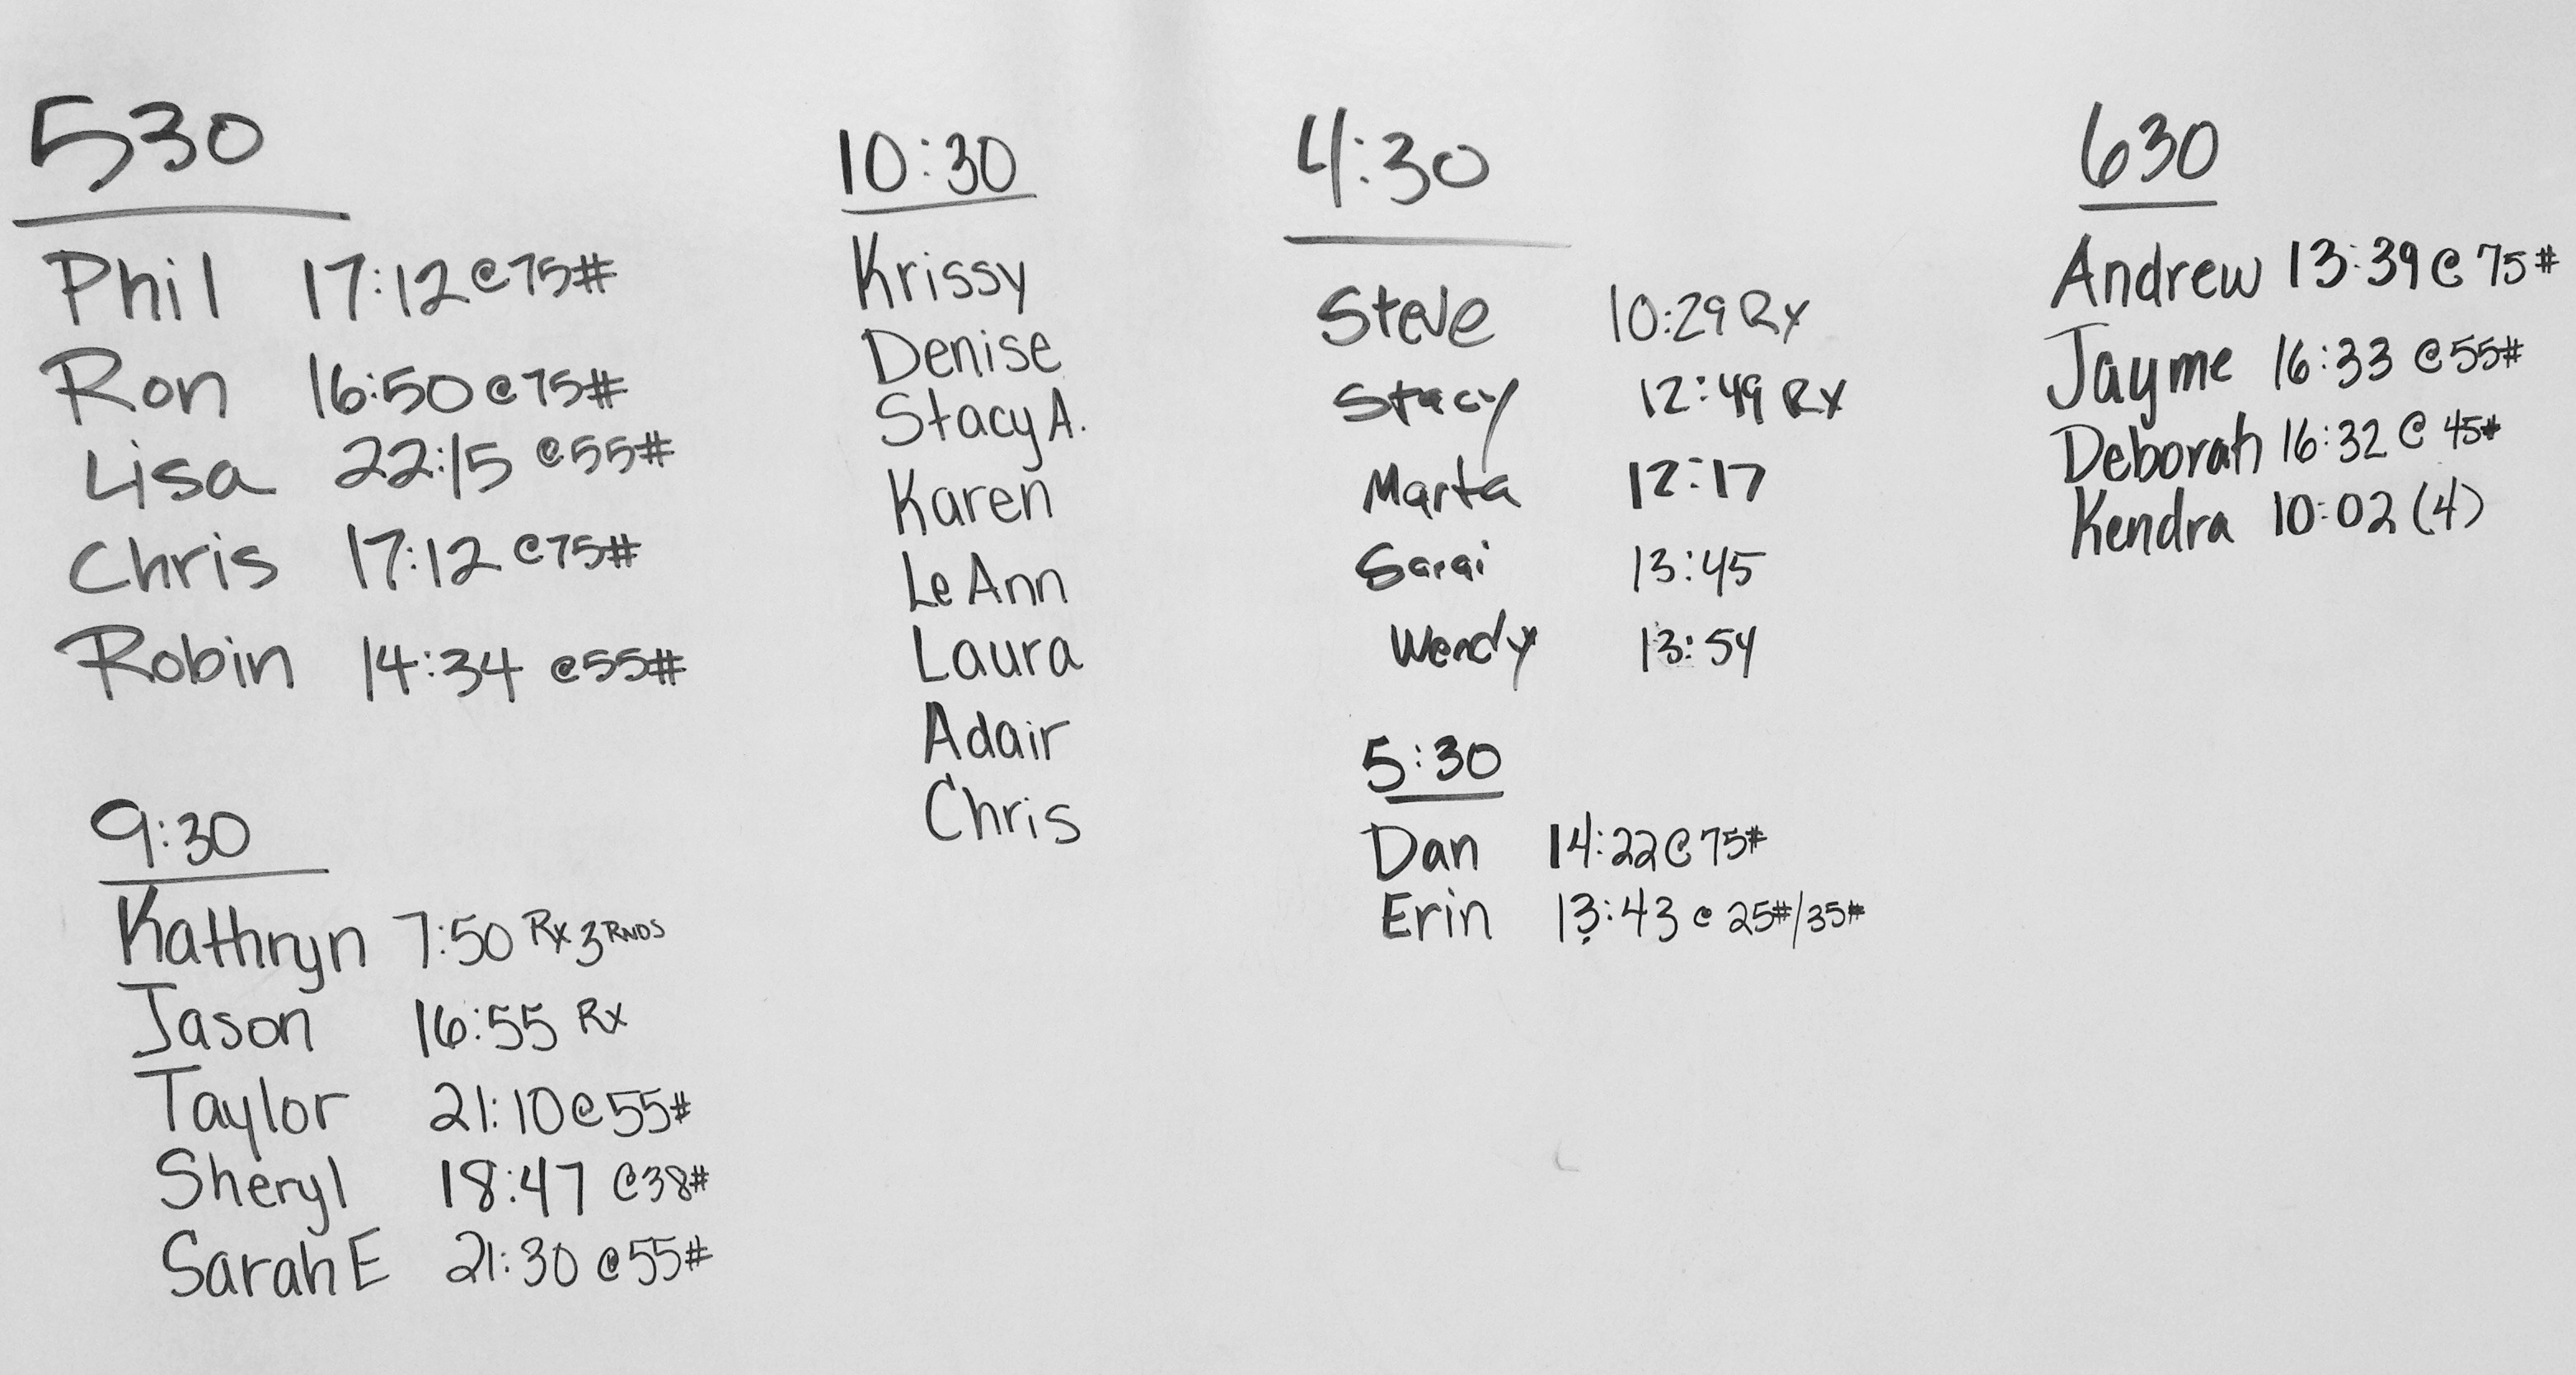 530
Phil 17:12 @ 75#
Ron 16:50 @ 75#
Lisa 22:15 @ 55#
Chris 17:12 @ 75#
Robin 14:34 @ 55#
9:30
Kathryn 7:50 Rx 3 RNDS
Jason 16:55 Rx
Taylor 21:10 @ 55#
Sheryl 18:47 @ 38#
Sarah E 21:30 @ 55#
10:30
Krissy
Denise
Stacy A.
Karen
LeAnn
Laura
Adair
Chris
4:30
Steve 10:29 Rx
Stacy 12:49 Rx
Marta 12:17
Sarai 13:45
Wendy 13:54
5:30
Dan 14:22 @ 75#
Erin 13:43 @ 25#/35#
630
Andrew 13:39 @ 75#
Jayme 16:33 @ 55#
Deborah 16:32 @ 45#
Kendra 10:02 (4)